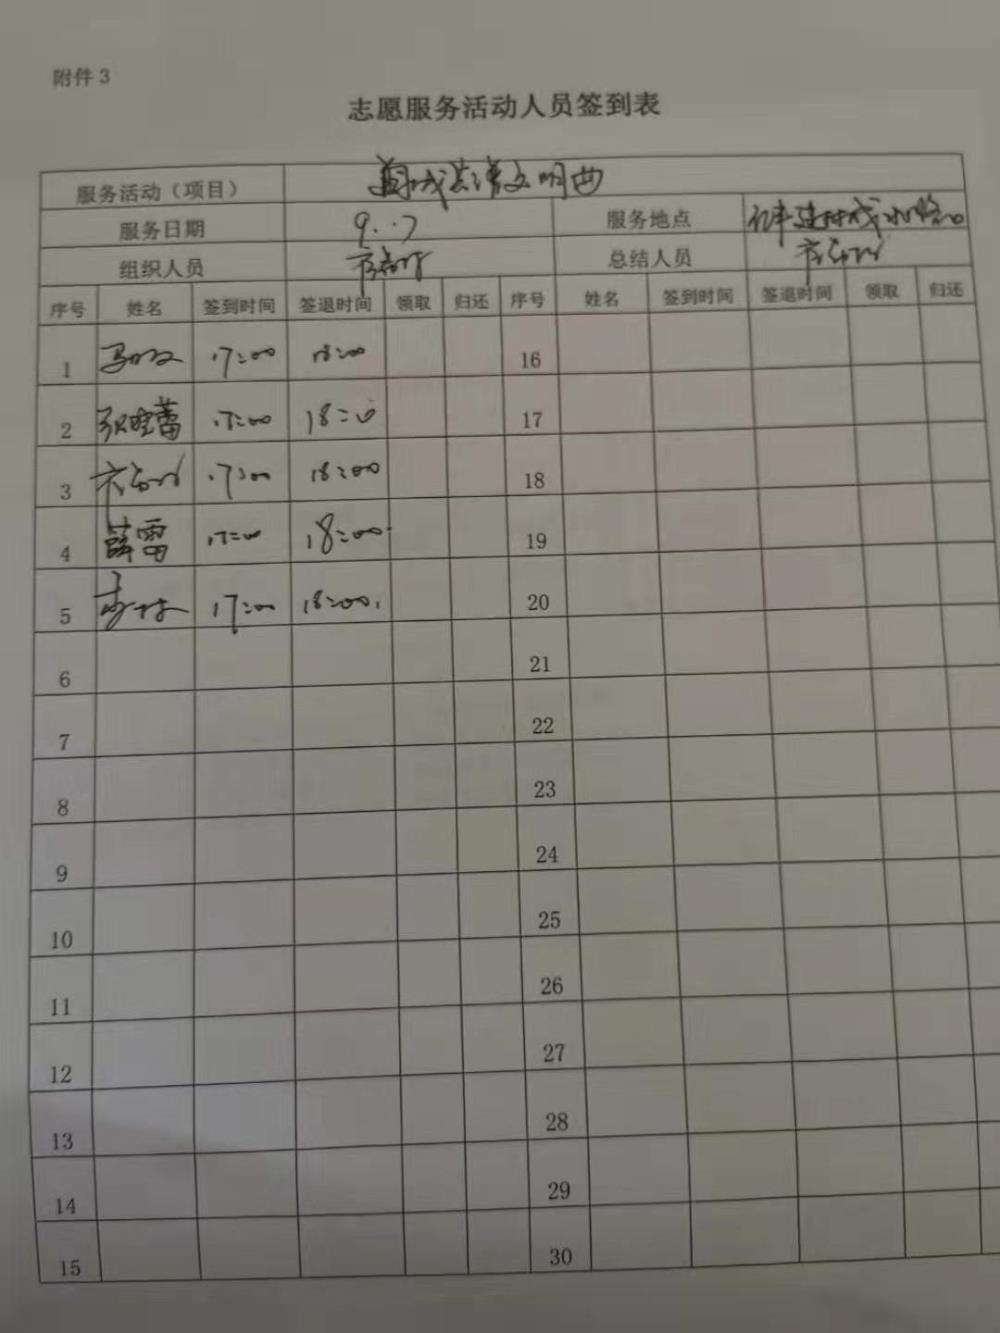 附件3
志愿服务活动人员签到表
服务活动（项目） 共谱文明曲
服务日期 9.7 服务地点
组织人员 总结人员
序号 姓名 签到时间 签退时间 领取 归还 序号 姓名 签到时间 签退时间 领取 归还
1 17:00 18:00 16
2 17:00 18:00 17
3 17:00 18:00 18
4 薛雷 17:00 18:00 19
5 17:00 18:00 20
6 21
7 22
8 23
9 24
10 25
11 26
12 27
13 28
14 29
15 30